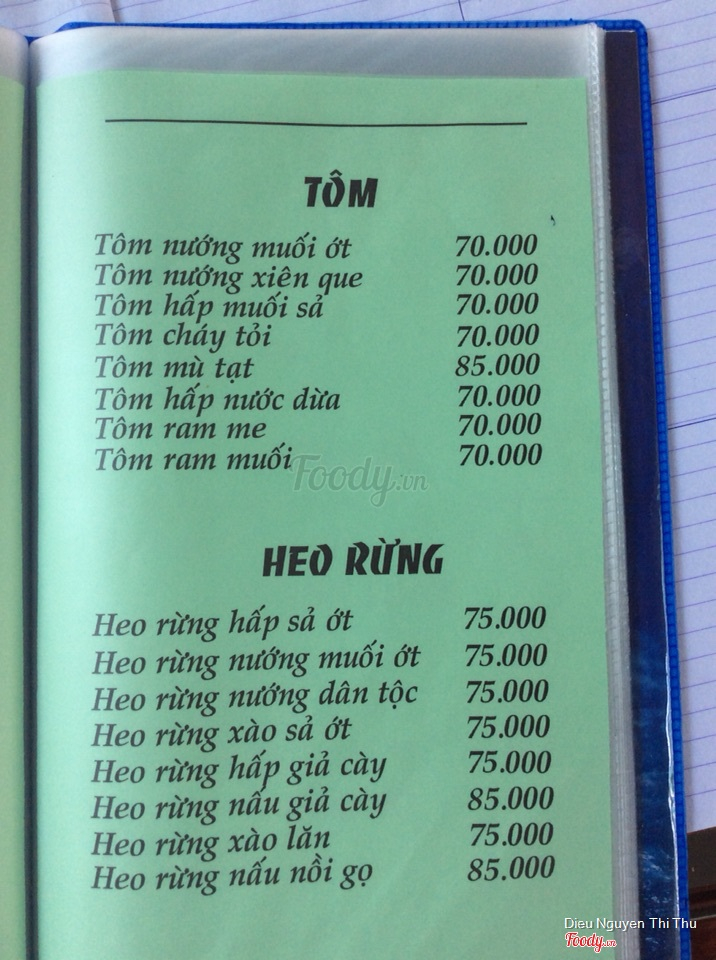 TÔM
Tôm nướng muối ớt 70.000
Tôm nướng xiên que 70.000
Tôm hấp muối sả 70.000
Tôm cháy tỏi 70.000
Tôm mù tạt 85.000
Tôm hấp nước dừa 70.000
Tôm ram me 70.000
Tôm ram muối 70.000
Foody.vn
HEO RỪNG
Heo rừng hấp sả ớt 75.000
Heo rừng nướng muối ớt 75.000
Heo rừng nướng dân tộc 75.000
Heo rừng xào sả ớt 75.000
Heo rừng hấp giả cày 75.000
Heo rừng nấu giả cày 85.000
Heo rừng xào lăn 75.000
Heo rừng nấu nồi gọ 85.000
Dieu Nguyen Thi Thu
Foody.vn